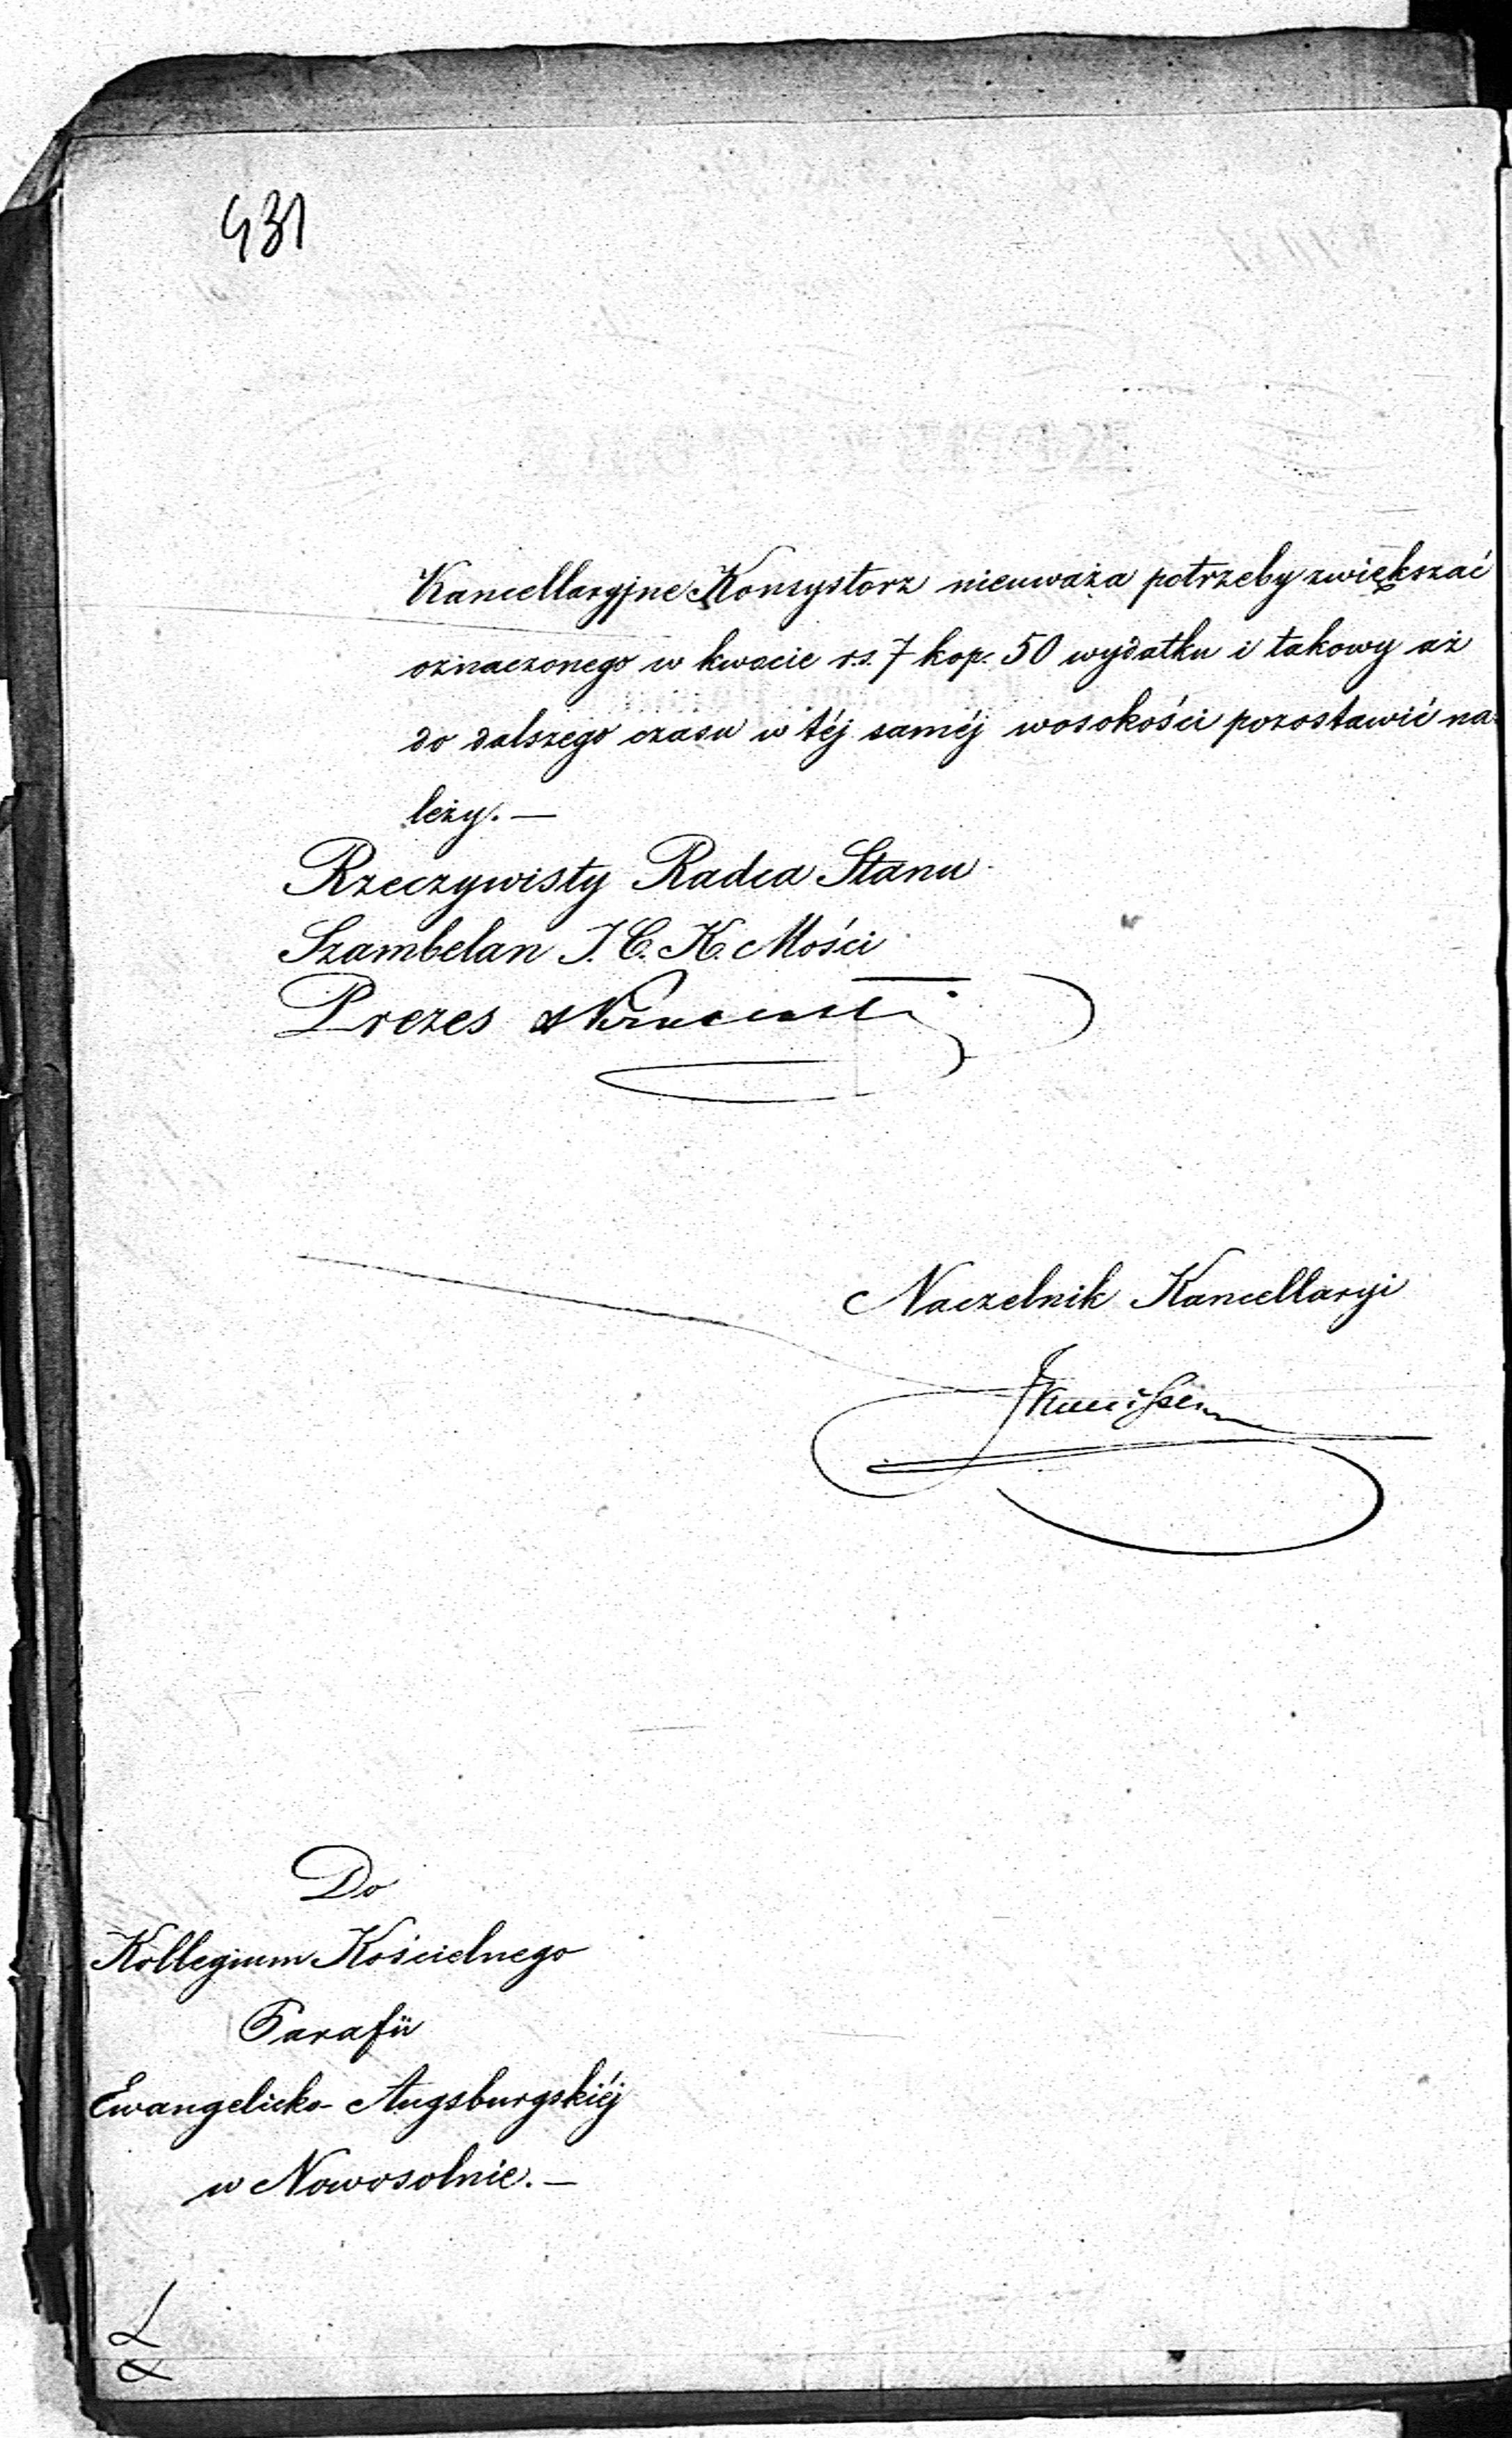 431
Kancellaryjne Konsystorz nieuważa potrzeby zwiększać
oznaczonego w kwocie r.s. 7 kop. 50 wydatku i takowy aż
do dalszego czasu w téj saméj wosokości pozostawić na-
leży. —
Rzeczywisty Radca Stanu
Szambelan J. C. K. Mości
Prezes
Naczelnik Kancellaryi
Do
Kollegium Kościelnego
Parafii
Ewangelicko-Augsburgskiéj
w Nowosolnie. —